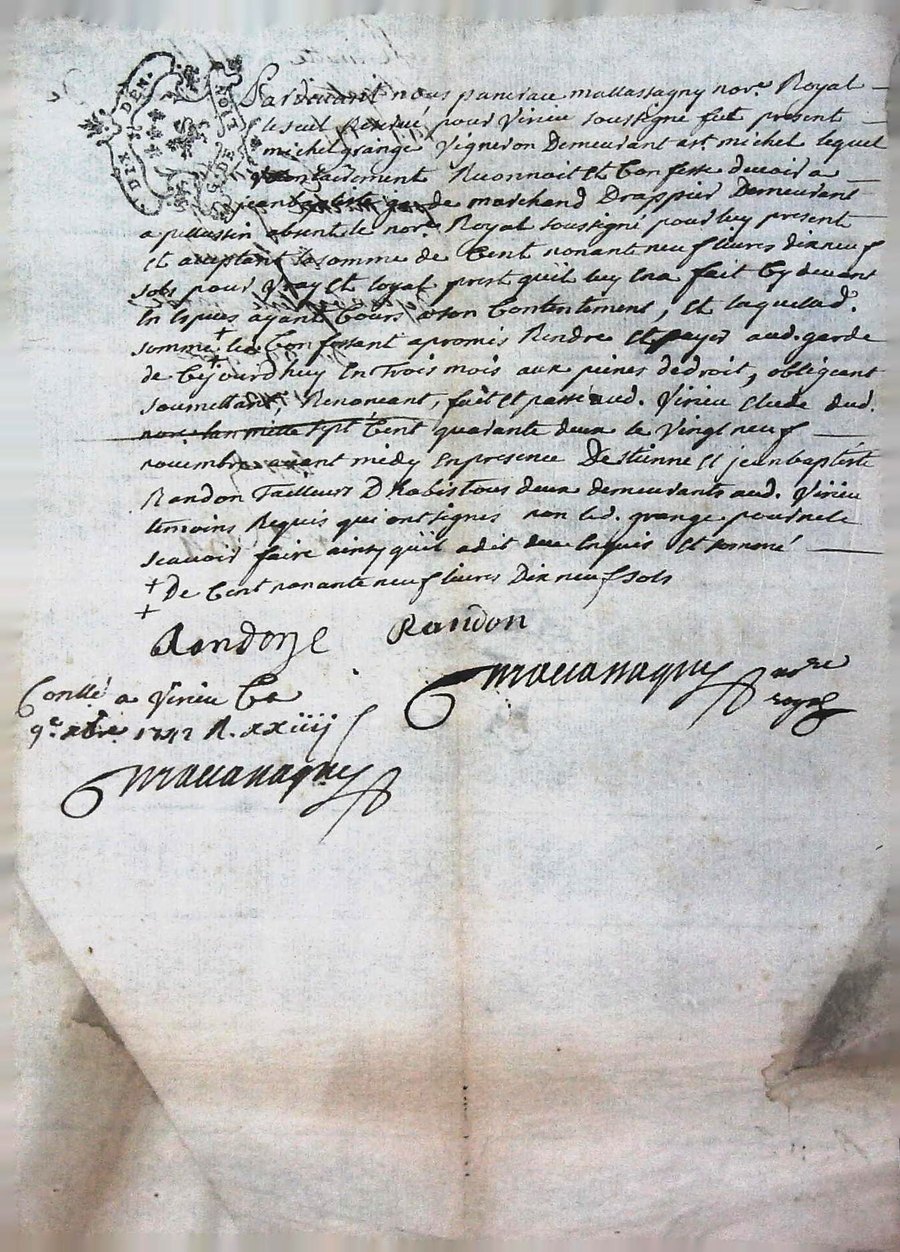 DIX DEN.
G. DE NOBLE
Pardevant nous pancrace mallassagny nore. Royal
le seul Rezerué pour Virieu soussigné fut present
michel grange Vigneron Demeurant a st. michel lequel
Reconnoit Et Confesse devoir a
jean garde marchand Drappier Demeurant
a pellussin absent le nore. Royal soussigné pour luy present
Et aceptant la somme de Cent nonante neuf liures dix neuf
sols pour Vray Et loyal prest quil luy En a fait Cy devant
En Especes ayant Cours a son Contentement, Et laquelle d.
somme + led. Confessant a promis Rendre Et payer aud. garde
de Cejourdhuy En trois mois aux peines de droit, obligeant
soumettant Renonceant, fait Et passé aud. Virieu Etude dud.
nore. lan mille sept Cent quarante deux le Vingt neuf
novembre avant midy En presence D'Estienne Et jean baptiste
Randon Tailleurs D'habis tous deux demeurants aud. Virieu
temoins Requis qui ont signes non led. grange pour ne le
scavoir faire ainsy quil a dit de ce Enquis Et sommé
+ De Cent nonante neuf liures Dix neuf sols
+
Randon Randon
nore
royal
Contlé a Virieu Ce
9e. xbre 1742 R. xxiiij s